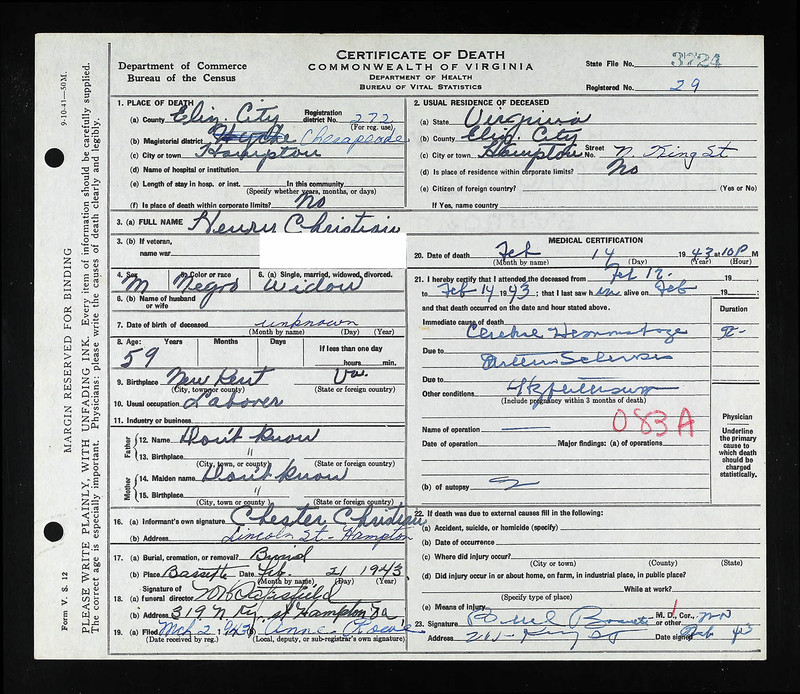 CERTIFICATE OF DEATH
COMMONWEALTH OF VIRGINIA
DEPARTMENT OF HEALTH
BUREAU OF VITAL STATISTICS
Department of Commerce
Bureau of the Census
State File No. 3724
Registered No. 29
9-10-41—50M.
MARGIN RESERVED FOR BINDING
PLEASE WRITE PLAINLY, WITH UNFADING INK. Every item of information should be carefully supplied.
The correct age is especially important. Physicians: please write the causes of death clearly and legibly.
Form V. S. 12
1. PLACE OF DEATH
(a) County Eliz. City Registration district No. 272
(For reg. use)
(b) Magisterial district Chesapeake
(c) City or town Hampton
(d) Name of hospital or institution
(e) Length of stay in hosp. or inst. In this community
(Specify whether years, months, or days)
(f) Is place of death within corporate limits? No
2. USUAL RESIDENCE OF DECEASED
(a) State Virginia
(b) County Eliz. City
(c) City or town Hampton Street No. N. King St
(d) Is place of residence within corporate limits? No
(e) Citizen of foreign country? (Yes or No)
If Yes, name country
3. (a) FULL NAME Henry Christian
3. (b) If veteran,
name war
4. Sex M 5. Color or race Negro 6. (a) Single, married, widowed, divorced. Widow
6. (b) Name of husband
or wife
7. Date of birth of deceased unknown
(Month by name) (Day) (Year)
8. Age: 59 Years Months Days If less than one day
hours min.
9. Birthplace New Kent Va.
(City, town or county) (State or foreign country)
10. Usual occupation Laborer
11. Industry or business
Father
12. Name Don't know
13. Birthplace "
(City, town, or county) (State or foreign country)
Mother
14. Maiden name Don't know
15. Birthplace "
(City, town or county) (State or foreign country)
16. (a) Informant's own signature Chester Christian
(b) Address Lincoln St- Hampton
17. (a) Burial, cremation, or removal? Burial
(b) Place Bassette Date Feb. 21 1943
(Month by name) (Day) (Year)
18. (a) Signature of funeral director
(b) Address 319 N King st Hampton Va
19. (a) Filed Mch 2 1943 Anne Rowe
(Date received by reg.) (Local, deputy, or sub-registrar's own signature)
MEDICAL CERTIFICATION
20. Date of death Feb 14 1943 at 10 P M
(Month by name) (Day) (Year) (Hour)
21. I hereby certify that I attended the deceased from Feb 12. 19
to Feb 14 1943; that I last saw him alive on Feb 19
and that death occurred on the date and hour stated above.
Duration
Immediate cause of death Hemorrhage
Due to
Due to
Other conditions
(Include pregnancy within 3 months of death)
083A
Name of operation
Date of operation Major findings: (a) of operations
(b) of autopsy
Physician
Underline
the primary
cause to
which death
should be
charged
statistically.
22. If death was due to external causes fill in the following:
(a) Accident, suicide, or homicide (specify)
(b) Date of occurrence
(c) Where did injury occur?
(City or town) (County) (State)
(d) Did injury occur in or about home, on farm, in industrial place, in public place?
While at work?
(Specify type of place)
(e) Means of injury
23. Signature M. D., Cor., or other
Address King St Date signed Feb 43